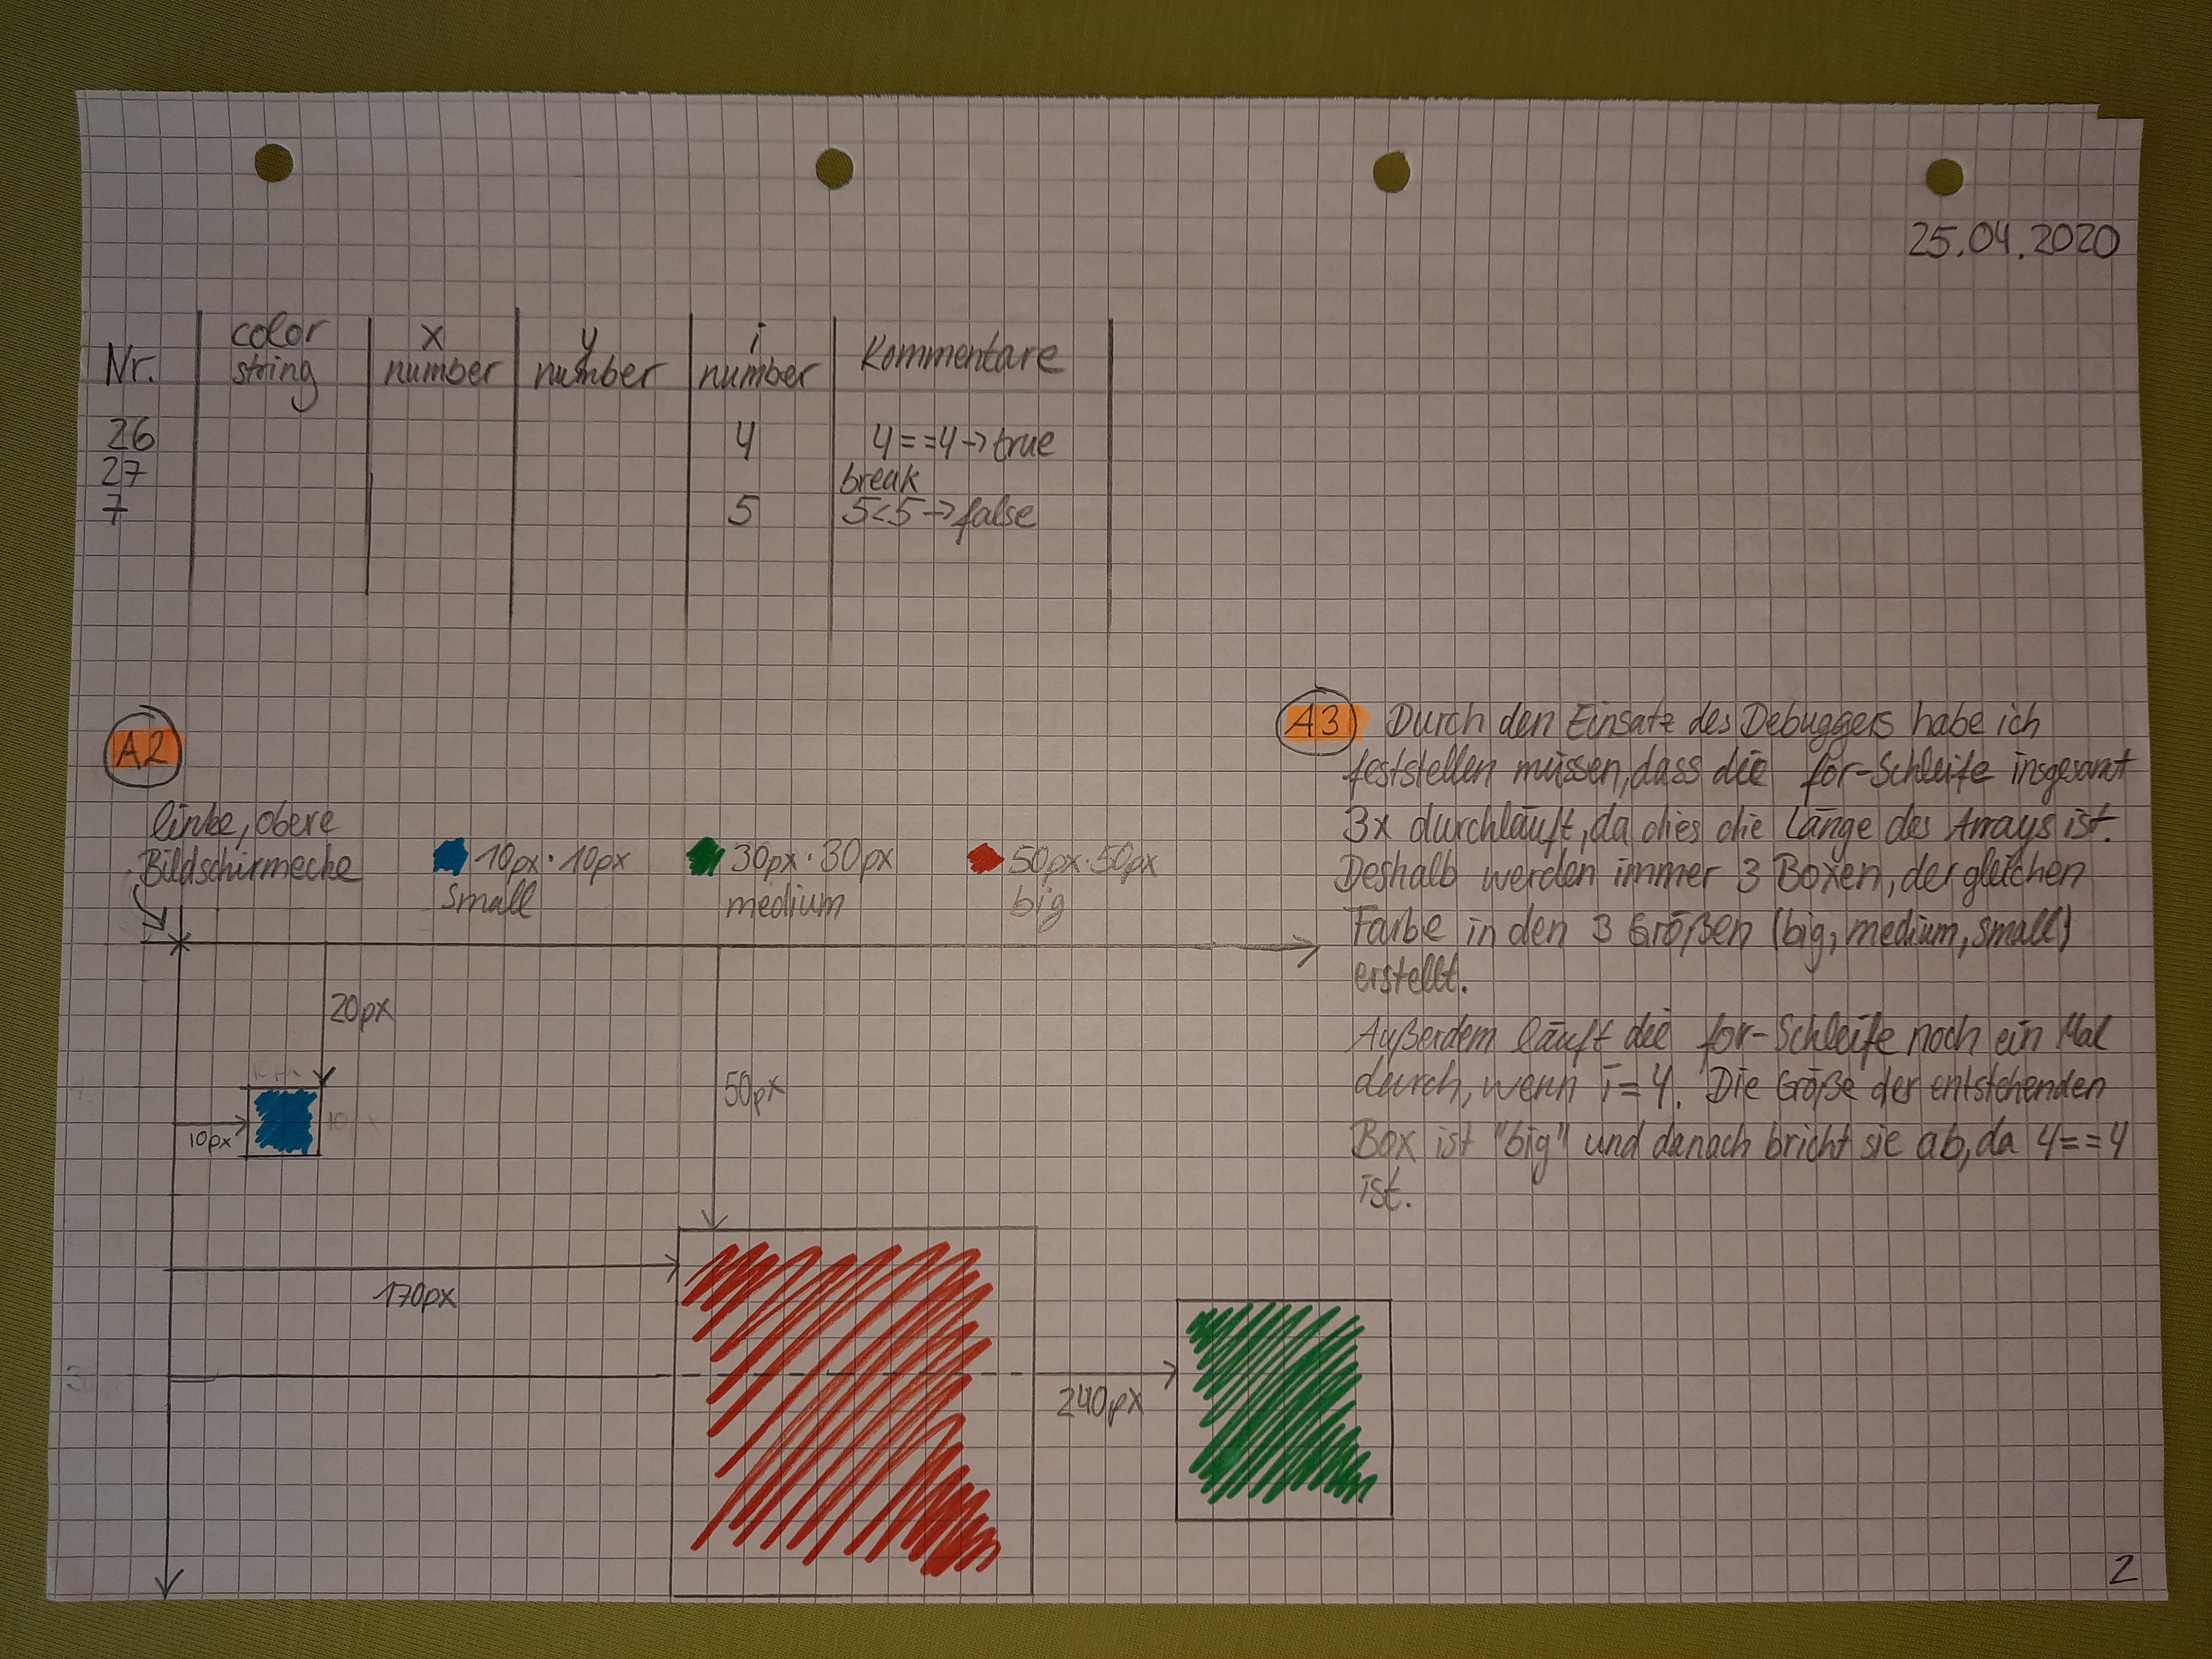 25.04.2020
Nr. color string x number y number i number Kommentare
26 4 4==4→true
27 break
7 5 5<5→false
A2
linke, obere
Bildschirmecke
10px·10px
small
30px·30px
medium
50px·50px
big
20px
10px
10px
10px
50px
170px
240px
A3 Durch den Einsatz des Debuggers habe ich
feststellen müssen, dass die for-Schleife insgesamt
3x durchläuft, da dies die Länge des Arrays ist.
Deshalb werden immer 3 Boxen, der gleichen
Farbe in den 3 Größen (big, medium, small)
erstellt.
Außerdem läuft die for-Schleife noch ein Mal
durch, wenn i=4. Die Größe der entstehenden
Box ist "big" und danach bricht sie ab, da 4==4
ist.
2